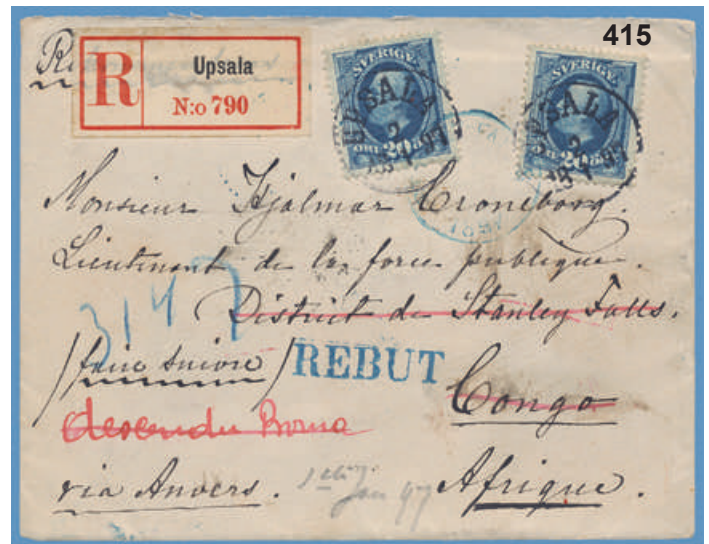 415
R
Upsala
N:o 790
SVERIGE
20
SVERIGE
20
UPSALA
UPSALA
Monsieur Hjalmar Croneborg.
Lieutenant de la force publique.
District de Stanley Falls.
3147
/faire suivre/
REBUT
Congo
descendu Boma
via Anvers.
Afrique.